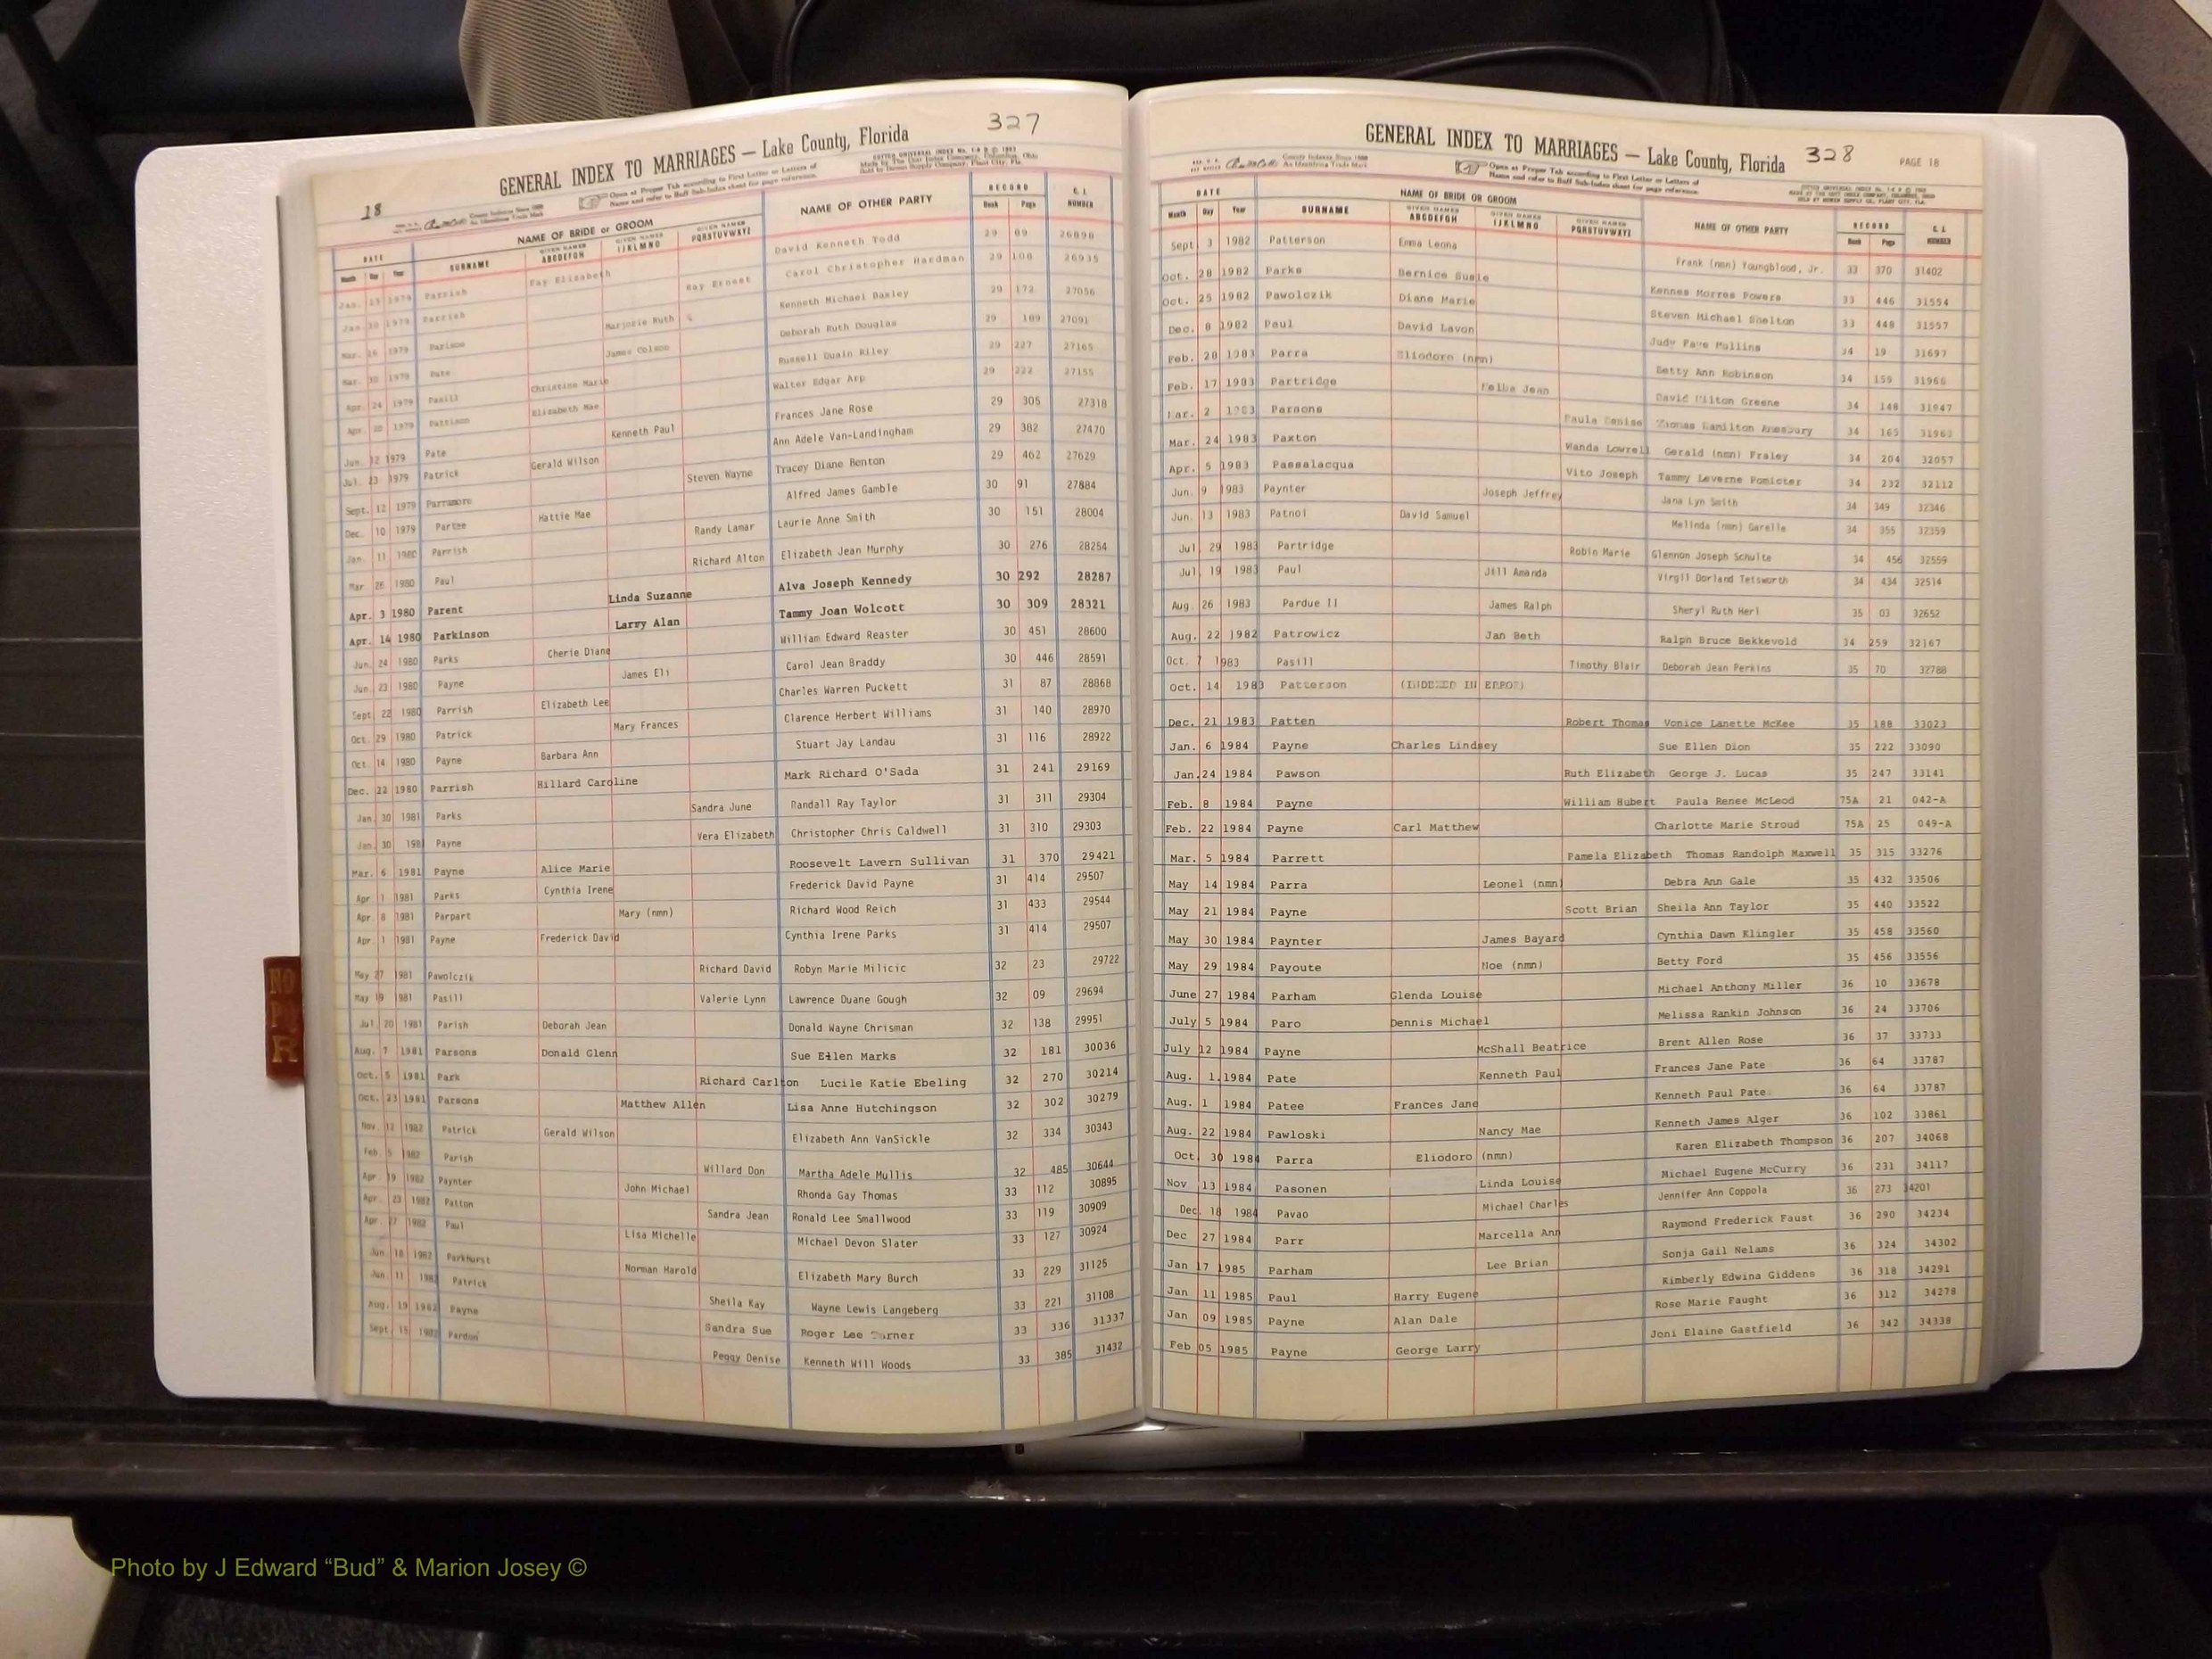 327
GENERAL INDEX TO MARRIAGES — Lake County, Florida
18
Open at Proper Tab according to First Letter or Letters of
Name and refer to Buff Sub-Index sheet for page reference.
DATE NAME OF BRIDE or GROOM NAME OF OTHER PARTY RECORD
Month Day Year SURNAME GIVEN NAMES ABCDEFGH GIVEN NAMES IJKLMNO GIVEN NAMES PQRSTUVWXYZ Book Page NUMBER
Jan. 1979 Parrish Fay Elizabeth David Kenneth Todd 29
Jan. 30 1979 Parrish Ray Ernest Carol Christopher Hardman 29 108 26935
Mar. 16 1979 Parison Marjorie Ruth Kenneth Michael Baxley 29 172 27056
Mar. 30 1979 Pate James Colson Deborah Ruth Douglas 29 189 27091
Apr. 24 1979 Pasill Christine Marie Russell Duain Riley 29 227 27165
Apr. 20 1979 Pattison Elizabeth Mae Walter Edgar Arp 29 222 27155
Jun. 12 1979 Pate Kenneth Paul Frances Jane Rose 29 305 27318
Jul. 23 1979 Patrick Gerald Wilson Ann Adele Van-Landingham 29 382 27470
Sept. 12 1979 Parramore Steven Wayne Tracey Diane Benton 29 462 27629
Dec. 10 1979 Partee Hattie Mae Alfred James Gamble 30 91 27884
Jan. 11 1980 Parrish Randy Lamar Laurie Anne Smith 30 151 28004
Mar 26 1980 Paul Richard Alton Elizabeth Jean Murphy 30 276 28254
Apr. 3 1980 Parent Linda Suzanne Alva Joseph Kennedy 30 292 28287
Apr. 14 1980 Parkinson Larry Alan Tammy Joan Wolcott 30 309 28321
Jun. 24 1980 Parks Cherie Diane William Edward Reaster 30 451 28600
Jun. 23 1980 Payne James Eli Carol Jean Braddy 30 446 28591
Sept 22 1980 Parrish Elizabeth Lee Charles Warren Puckett 31 87 28868
Oct. 29 1980 Patrick Mary Frances Clarence Herbert Williams 31 140 28970
Oct. 14 1980 Payne Barbara Ann Stuart Jay Landau 31 116 28922
Dec. 22 1980 Parrish Hillard Caroline Mark Richard O'Sada 31 241 29169
Jan. 30 1981 Parks Sandra June Randall Ray Taylor 31 311 29304
Jan. 30 1981 Payne Vera Elizabeth Christopher Chris Caldwell 31 310 29303
Mar. 6 1981 Payne Alice Marie Roosevelt Lavern Sullivan 31 370 29421
Apr 1 1981 Parks Cynthia Irene Frederick David Payne 31 414 29507
Apr. 8 1981 Parpart Mary (nmn) Richard Wood Reich 31 433 29544
Apr. 1 1981 Payne Frederick David Cynthia Irene Parks 31 414 29507
May 27 1981 Pawolczik Richard David Robyn Marie Milicic 32 23 29722
May 19 1981 Pasill Valerie Lynn Lawrence Duane Gough 32 09 29694
Jul 20 1981 Parish Deborah Jean Donald Wayne Chrisman 32 138 29951
Aug. 7 1981 Parsons Donald Glenn Sue Ellen Marks 32 181 30036
Oct. 5 1981 Park Richard Carlton Lucile Katie Ebeling 32 270 30214
Oct. 23 1981 Parsons Matthew Allen Lisa Anne Hutchingson 32 302 30279
Nov. 12 1982 Patrick Gerald Wilson Elizabeth Ann VanSickle 32 334 30343
Feb. 5 1982 Parish Willard Don Martha Adele Mullis 32 485 30644
Apr. 19 1982 Paynter John Michael Rhonda Gay Thomas 33 112 30895
Apr. 23 1982 Patton Sandra Jean Ronald Lee Smallwood 33 119 30909
Apr. 27 1982 Paul Lisa Michelle Michael Devon Slater 33 127 30924
Jun. 18 1982 Parkhurst Norman Harold Elizabeth Mary Burch 33 229 31125
Jun. 11 1982 Patrick Sheila Kay Wayne Lewis Langeberg 33 221 31108
Aug. 19 1982 Payne Sandra Sue Roger Lee Turner 33 336 31337
Sept. 15 1982 Pardun Peggy Denise Kenneth Will Woods 33 385 31432
GENERAL INDEX TO MARRIAGES — Lake County, Florida 328 PAGE 18
Open at Proper Tab according to First Letter or Letters of
Name and refer to Buff Sub-Index sheet for page reference.
DATE NAME OF BRIDE OR GROOM NAME OF OTHER PARTY RECORD
Month Day Year SURNAME GIVEN NAMES ABCDEFGH GIVEN NAMES IJKLMNO GIVEN NAMES PQRSTUVWXYZ Book Page NUMBER
Sept 3 1982 Patterson Emma Leona Frank (nmn) Youngblood, Jr. 33 370 31402
Oct. 28 1982 Parks Bernice Susie Kennes Morres Powers 33 446 31554
Oct. 25 1982 Pawolczik Diane Marie Steven Michael Shelton 33 448 31557
Dec. 8 1982 Paul David Lavon Judy Faye Mullins 34 19 31697
Feb. 20 1983 Parra Eliodoro (nmn) Betty Ann Robinson 34 159 31966
Feb. 17 1983 Partridge Jean David Milton Greene 34 148 31947
Mar. 2 1983 Parsons Paula Denise Thomas Hamilton Amesbury 34 165
Mar. 24 1983 Paxton Wanda Lowrell Gerald (nmn) Fraley 34 204 32057
Apr. 5 1983 Passalacqua Vito Joseph Tammy Leverne Pomicter 34 232 32112
Jun. 9 1983 Paynter Joseph Jeffrey Jana Lyn Smith 34 349 32346
Jun. 13 1983 Patnoi David Samuel Melinda (nmn) Garelle 34 355 32359
Jul 29 1983 Partridge Robin Marie Glennon Joseph Schulte 34 456 32559
Jul. 19 1983 Paul Jill Amanda Virgil Dorland Tetsworth 34 434 32514
Aug. 26 1983 Pardue II James Ralph Sheryl Ruth Herl 35 03 32652
Aug. 22 1982 Patrowicz Jan Beth Ralph Bruce Bekkevold 34 259 32167
Oct. 7 1983 Pasill Timothy Blair Deborah Jean Perkins 35 70 32788
Oct. 14 1983 Patterson (INDEXED IN ERROR)
Dec. 21 1983 Patten Robert Thomas Vonice Lanette McKee 35 188 33023
Jan. 6 1984 Payne Charles Lindsey Sue Ellen Dion 35 222 33090
Jan. 24 1984 Pawson Ruth Elizabeth George J. Lucas 35 247 33141
Feb. 8 1984 Payne William Hubert Paula Renee McLeod 75A 21 042-A
Feb. 22 1984 Payne Carl Matthew Charlotte Marie Stroud 75A 25 049-A
Mar. 5 1984 Parrett Pamela Elizabeth Thomas Randolph Maxwell 35 315 33276
May 14 1984 Parra Leonel (nmn) Debra Ann Gale 35 432 33506
May 21 1984 Payne Scott Brian Sheila Ann Taylor 35 440 33522
May 30 1984 Paynter James Bayard Cynthia Dawn Klingler 35 458 33560
May 29 1984 Payoute Noe (nmn) Betty Ford 35 456 33556
June 27 1984 Parham Glenda Louise Michael Anthony Miller 36 10 33678
July 5 1984 Paro Dennis Michael Melissa Rankin Johnson 36 24 33706
July 12 1984 Payne McShall Beatrice Brent Allen Rose 36 37 33733
Aug. 1 1984 Pate Kenneth Paul Frances Jane Pate 36 64 33787
Aug. 1 1984 Patee Frances Jane Kenneth Paul Pate 36 64 33787
Aug. 22 1984 Pawloski Nancy Mae Kenneth James Alger 36 102 33861
Oct 30 1984 Parra Eliodoro (nmn) Karen Elizabeth Thompson 36 207 34068
Nov 13 1984 Pasonen Linda Louise Michael Eugene McCurry 36 231 34117
Dec. 18 1984 Pavao Michael Charles Jennifer Ann Coppola 36 273 34201
Dec 27 1984 Parr Marcella Ann Raymond Frederick Faust 36 290 34234
Jan 17 1985 Parham Lee Brian Sonja Gail Nelams 36 324 34302
Jan 11 1985 Paul Harry Eugene Kimberly Edwina Giddens 36 318 34291
Jan 09 1985 Payne Alan Dale Rose Marie Faught 36 312 34278
Feb 05 1985 Payne George Larry Joni Elaine Gastfield 36 342 34338
Photo by J Edward “Bud” & Marion Josey ©